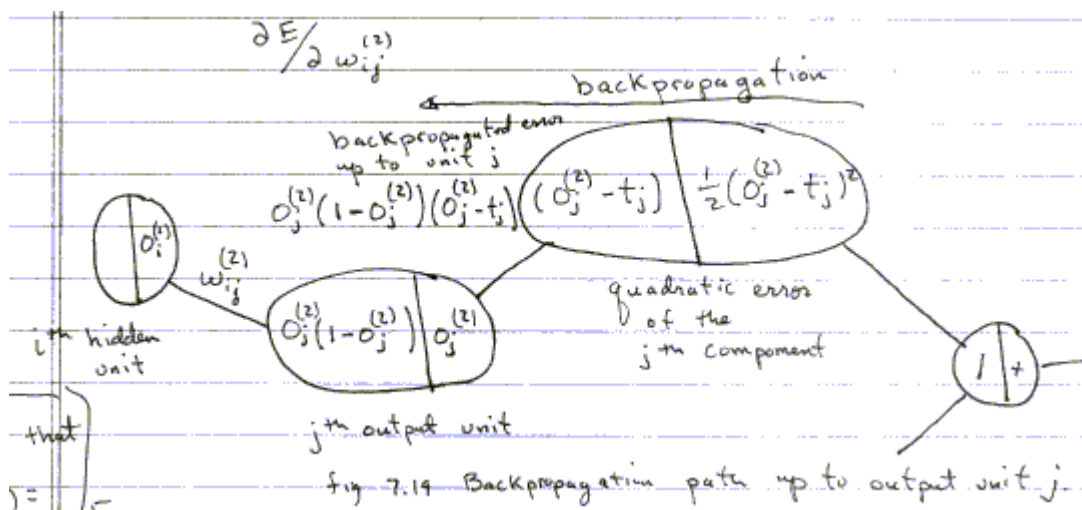 ∂E/∂w_ij^(2)
backpropagation
backpropagated error
up to unit j
O_j^(2)(1-O_j^(2))(O_j^(2)-t_j)
(O_j^(2)-t_j) | ½(O_j^(2)-t_j)²
O_i^(1)
w_ij^(2)
O_j^(2)(1-O_j^(2)) | O_j^(2)
quadratic error
of the
jth component
ith hidden
unit
1 | +
that
jth output unit
fig 7.19 Backpropagation path up to output unit j.
) =